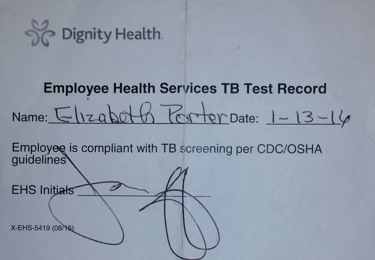 Dignity Health
Employee Health Services TB Test Record
Name: Elizabeth Porter Date: 1-13-16
Employee is compliant with TB screening per CDC/OSHA
guidelines
EHS Initials
X-EHS-5419 (08/16)